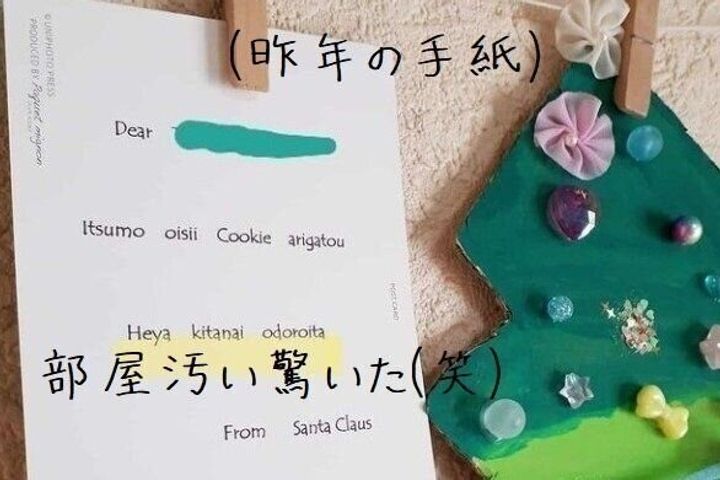 (昨年の手紙)
© UNIPHOTO PRESS
PRODUCED BY Elegant mignon
Dear
Itsumo oisii Cookie arigatou
POST CARD
Heya kitanai odoroita
部屋汚い驚いた(笑)
From Santa Claus